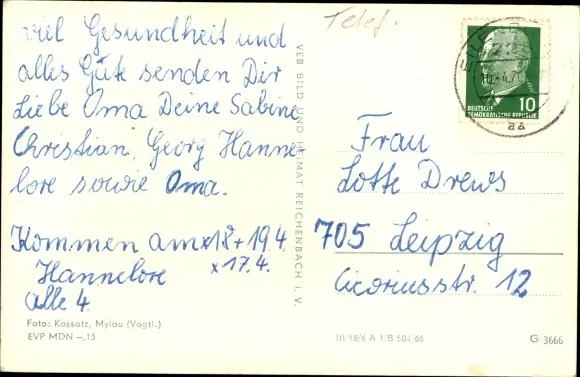 viel Gesundheit und
alles Gute senden Dir
Liebe Oma Deine Sabine
Christian, Georg Hanne-
lore sowie Oma.
Kommen am x18 + 19.4.
Hannelore x 17.4.
alle 4.
Foto: Kossatz, Mylau (Vogtl.)
EVP MDN –.15
VEB BILD UND HEIMAT REICHENBACH i. V.
Telef.
DEUTSCHE
DEMOKRATISCHE REPUBLIK
10
aa
Frau
Lotte Drews
705 Leipzig
Cicoriusstr. 12
III/18/6 A 1/B 504/66
G 3666